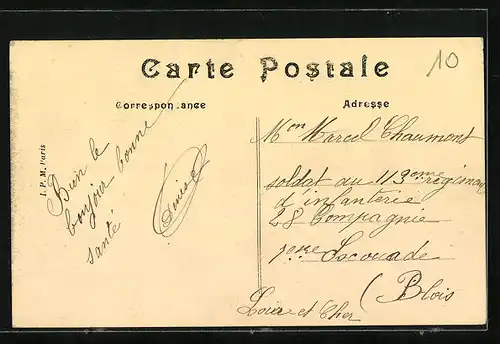 10
Carte Postale
Correspondance
Adresse
I. P. M. Paris
Bien le
bonjour bonne
santé
Mon Marcel Chaumont
soldat au 113eme regiment
d'infanterie
28 Compagnie
1ere Escouade
(Blois
Loir et Cher